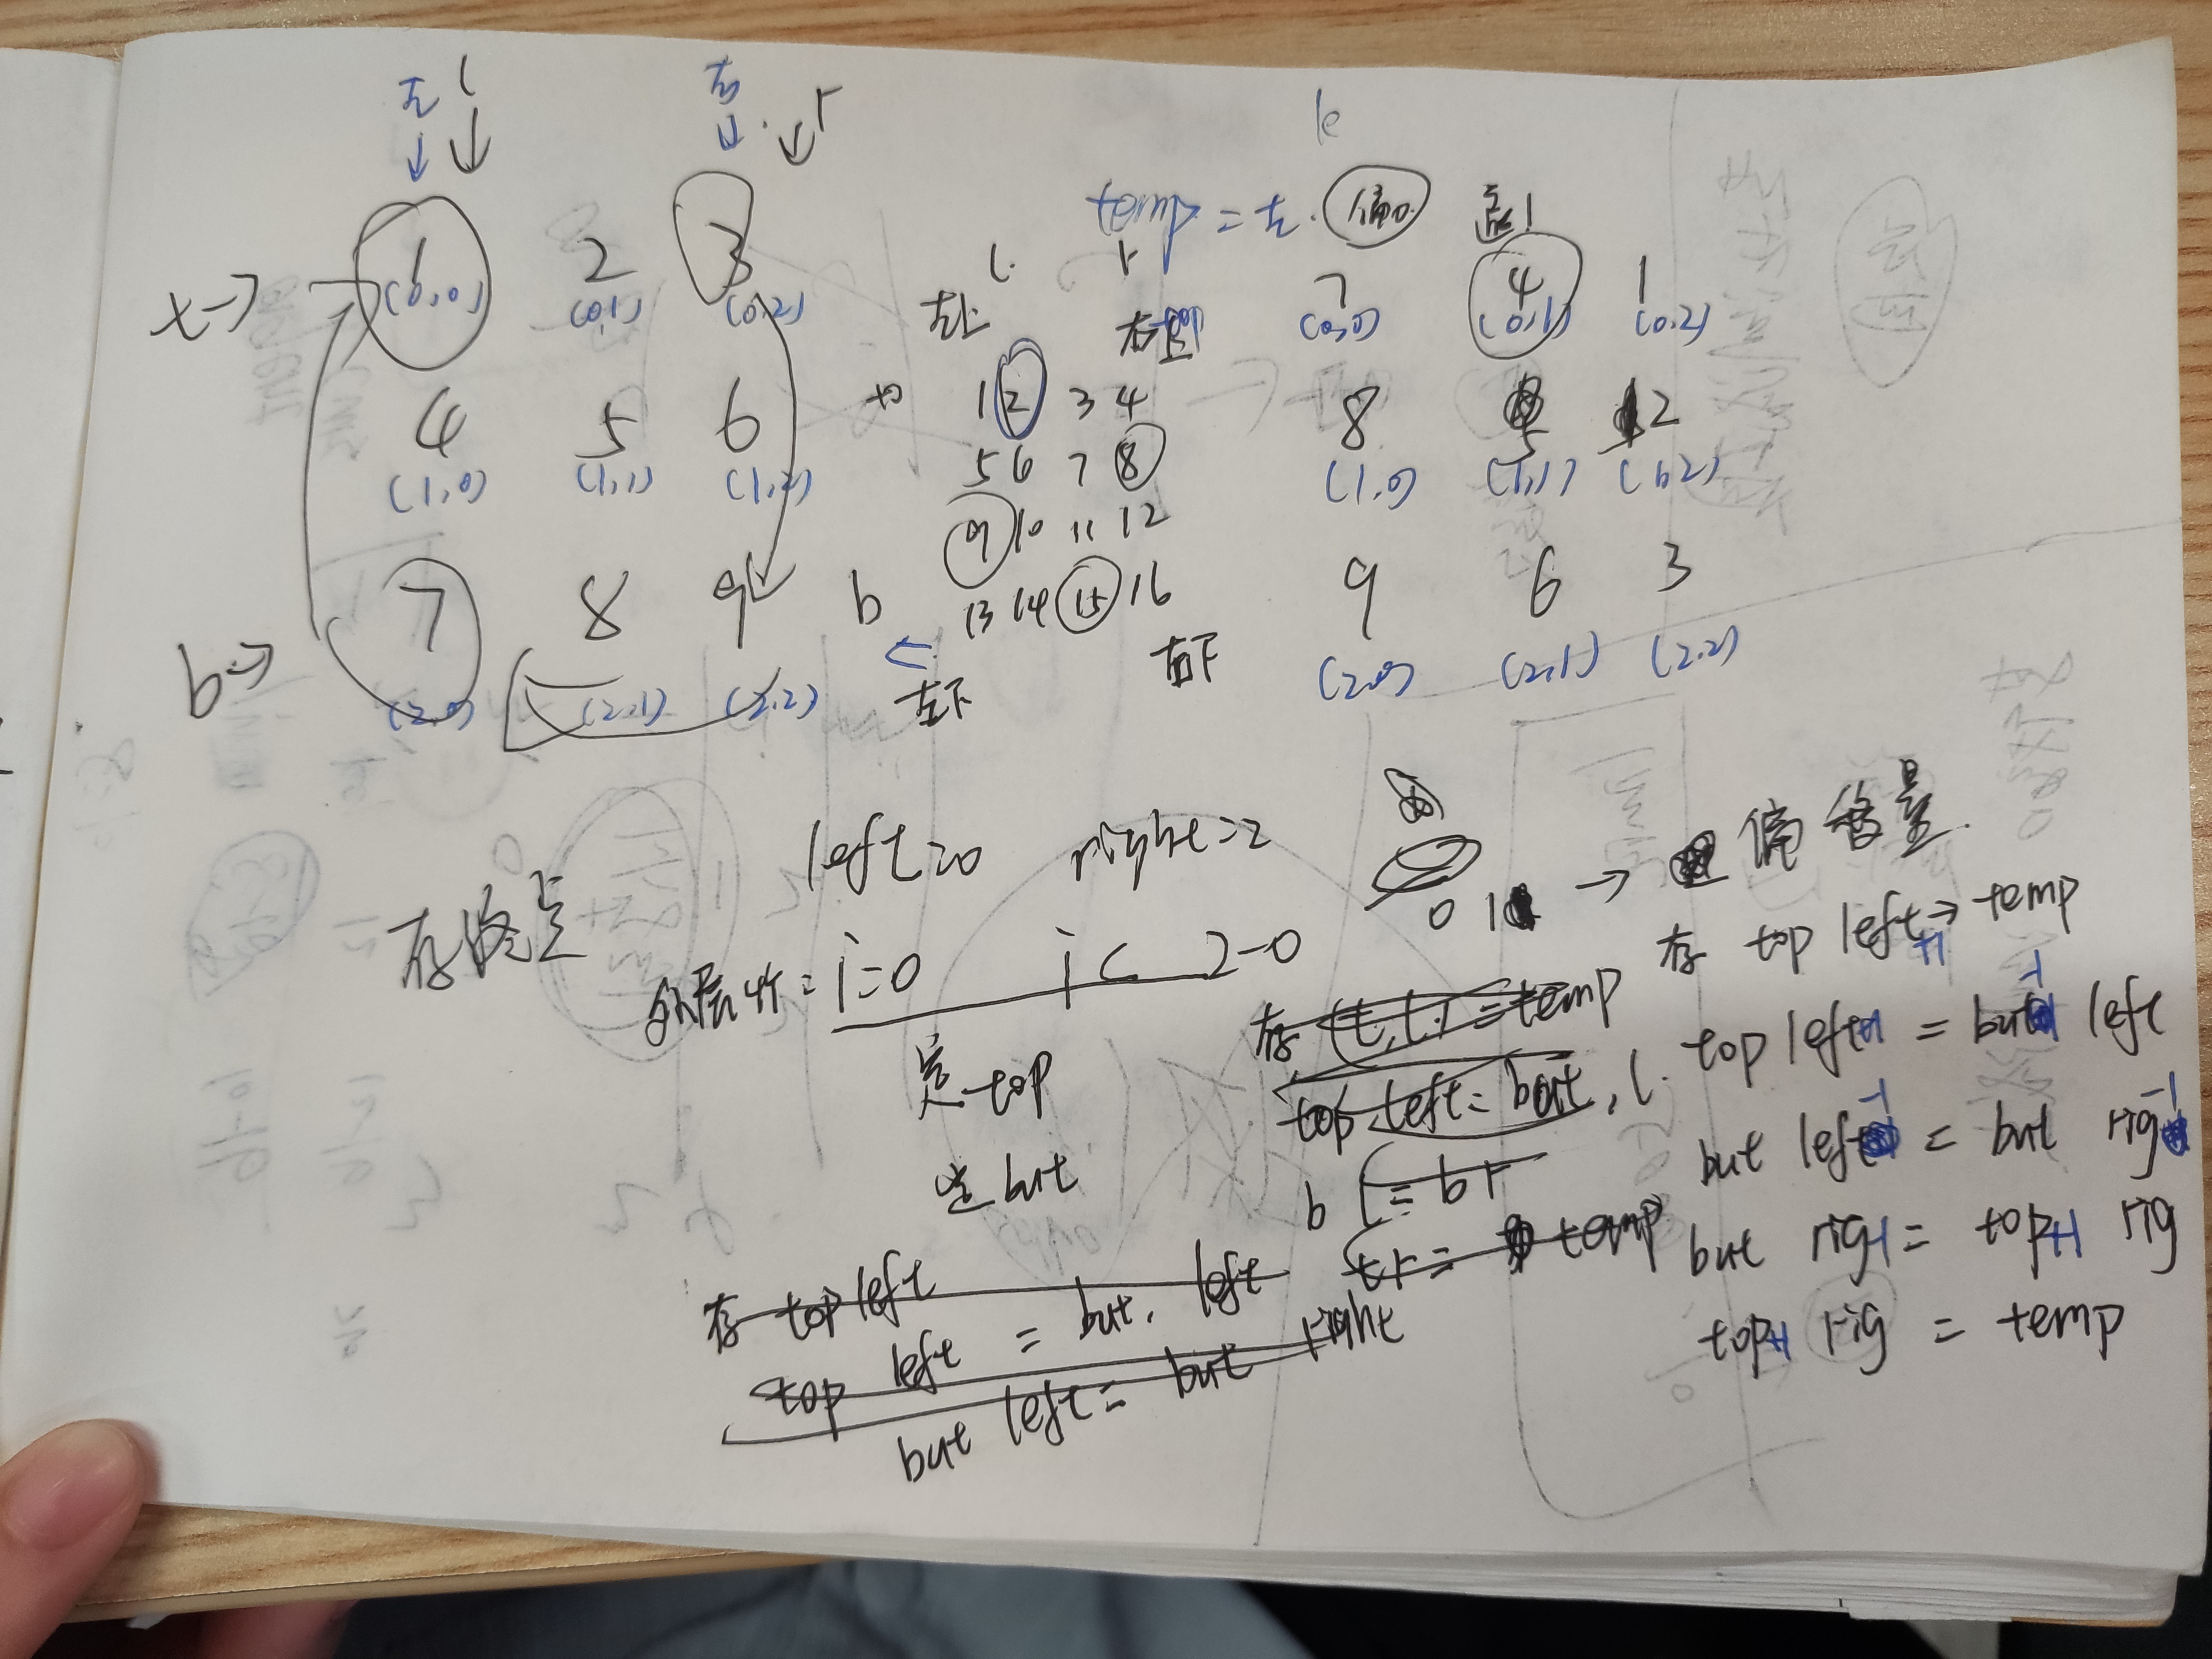 左 l 右 r
k
temp = 左.偏0. 遍1
t→ 1 2 3
(0,0) (0,1) (0,2)
4 5 6
(1,0) (1,1) (1,2)
b→ 7 8 9
(2,0) (2,1) (2,2)
l. r
左上 右上
1 2 3 4
5 6 7 8
9 10 11 12
b 13 14 15 16
左下 右下
7 4 1
(0,0) (0,1) (0,2)
8 5 2
(1,0) (1,1) (1,2)
9 6 3
(2,0) (2,1) (2,2)
left=0 right=2
存终点
外层 i=0 i< 2-0
定 top
定 but
存 top left
top left = but. left
but left = but right
0 1 → 偏移量.
存 (t, l.) = temp
top left = but, l.
b l = b r
t r = temp
存 top left+1 → temp
top left+1 = but-1 left
but left-1 = but rig-1
but rig-1 = top+1 rig
top+1 rig = temp